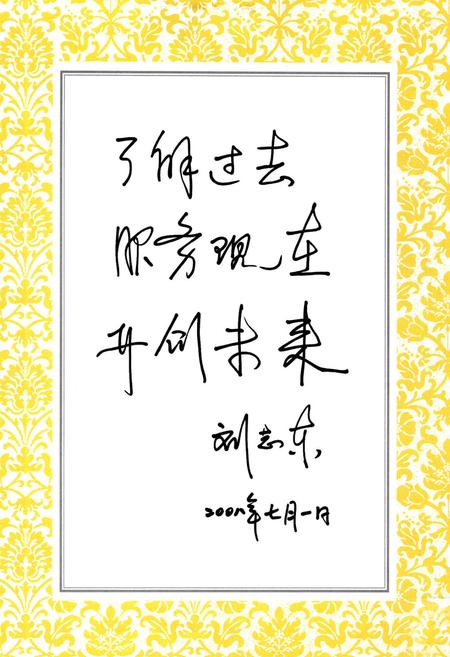 了解过去
服务现在
开创未来
刘志东
2008年七月一日